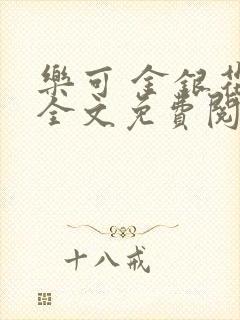 樂可 金銀花
全文免費閱
十八戒